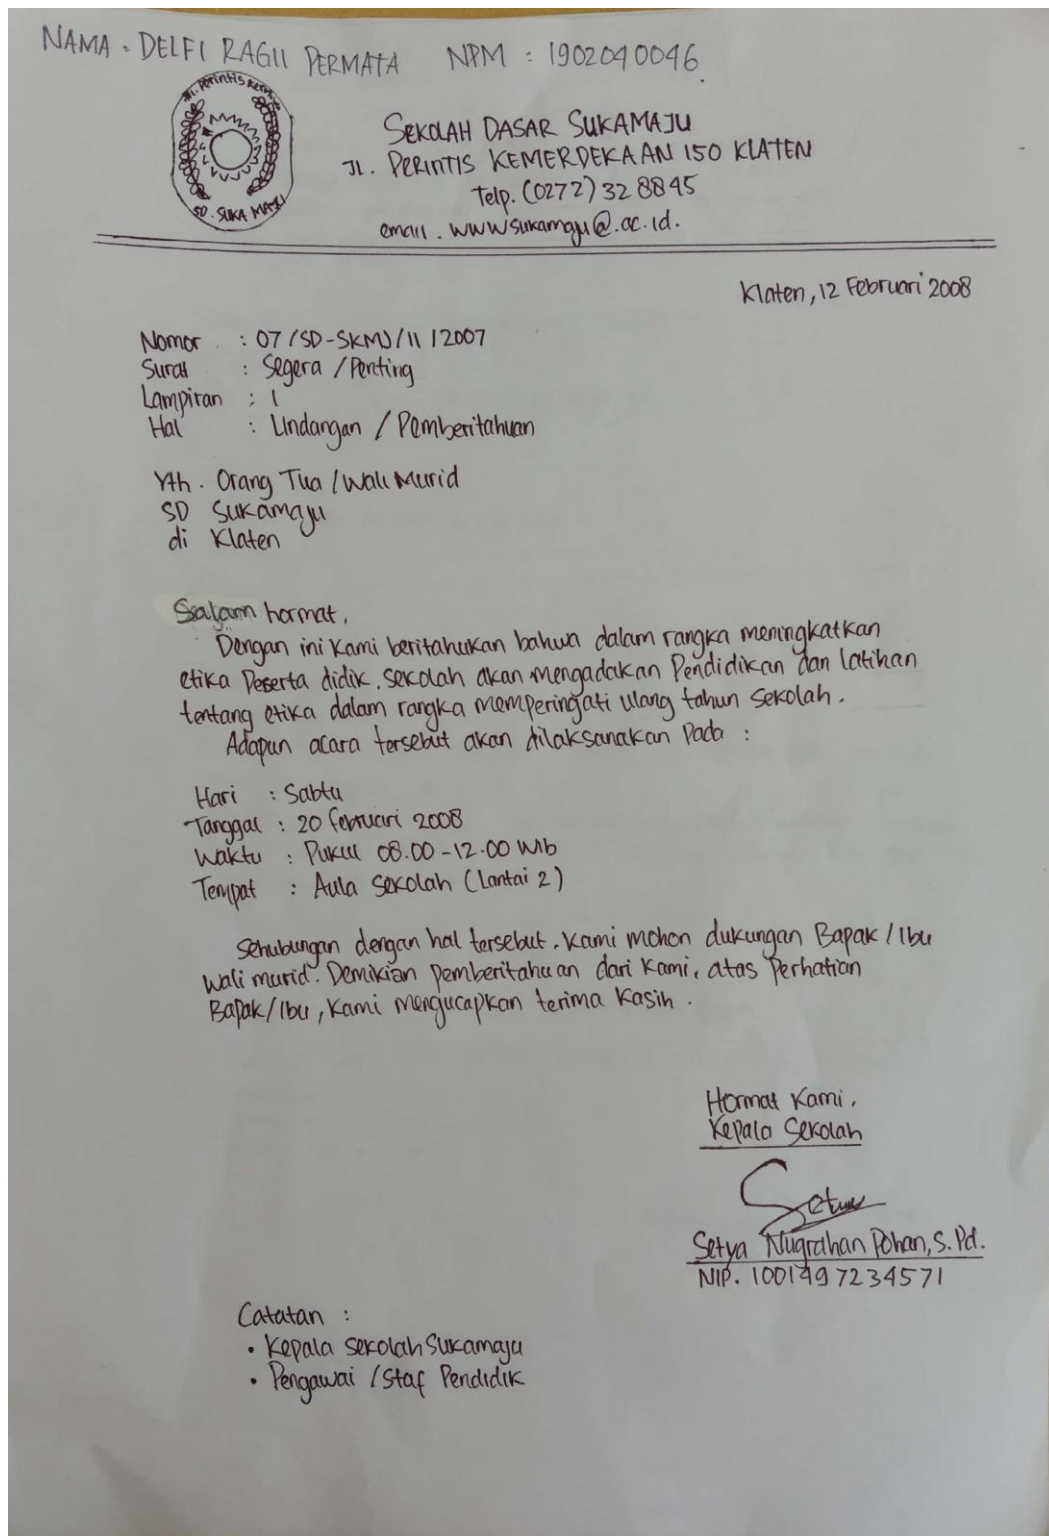 NAMA . DELFI RAGIL PERMATA NPM : 1902040046
Jl. Perintis Kemer
SD. SUKA MAJU
SEKOLAH DASAR SUKAMAJU
Jl. PERINTIS KEMERDEKAAN 150 KLATEN
Telp. (0272) 32 8845
email . wwwsukamaju@.ac.id.
Klaten, 12 Februari 2008
Nomor : 07 /SD-SKMJ/II/2007
Surat : Segera / Penting
Lampiran : 1
Hal : Undangan / Pemberitahuan
Yth . Orang Tua / Wali Murid
SD Sukamaju
di Klaten
Salam hormat,
Dengan ini Kami beritahukan bahwa dalam rangka meningkatkan
etika Peserta didik, sekolah akan mengadakan Pendidikan dan latihan
tentang etika dalam rangka memperingati ulang tahun sekolah.
Adapun acara tersebut akan dilaksanakan Pada :
Hari : Sabtu
Tanggal : 20 februari 2008
Waktu : Pukul 08.00-12.00 Wib
Tempat : Aula sekolah (Lantai 2)
Sehubungan dengan hal tersebut. Kami mohon dukungan Bapak/Ibu
wali murid. Demikian pemberitahuan dari Kami, atas Perhatian
Bapak/Ibu, Kami mengucapkan terima Kasih.
Hormat Kami,
Kepala Sekolah
Setya
Setya Nugrahan Pohan, S.Pd.
NIP. 1001497234571
Catatan :
• Kepala sekolah Sukamaju
• Pengawai / Staf Pendidik